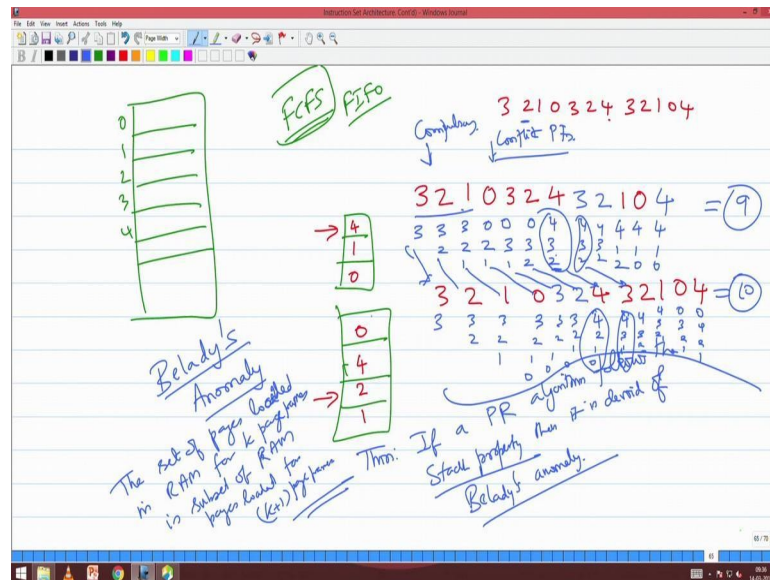 Instruction Set Architecture. Cont'd) - Windows Journal
File Edit View Insert Actions Tools Help
Page Width
B I
FCFS FIFO
3 2 1 0 3 2 4 3 2 1 0 4
Compulsory
Conflict PFs
0
1
2
3
4
3 2 1 0 3 2 4 3 2 1 0 4 = 9
3 3 3 0 0 0 4 4 4 4 4
2 2 2 3 3 3 3 3 1 1 1
1 1 1 2 2 2 2 2 0 0
4
1
0
3 2 1 0 3 2 4 3 2 1 0 4 = 10
3 3 3 3 3 3 4 4 4 4 0 0
2 2 2 2 2 2 3 3 3 3 4
1 1 1 1 1 1
0 0 0 0
0
4
2
1
Belady's
Anomaly
The set of pages loaded
in RAM for k page frames
is subset of RAM
pages loaded for
(k+1) page frames
Thm: If a PR algorithm follows the
Stack property then it is devoid of
Belady's anomaly.
65 / 70
65
09:36